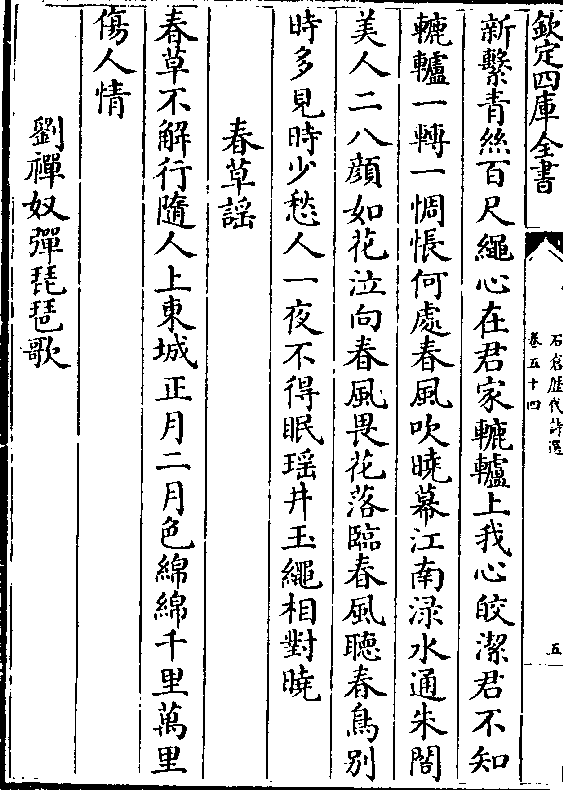 欽定四庫全書
石倉歷代詩選
卷五十四
五
新繫青絲百尺繩心在君家轆轤上我心皎潔君不知
轆轤一轉一惆悵何處春風吹曉幕江南淥水通朱閣
美人二八顔如花泣向春風畏花落臨春風聽春鳥别
時多見時少愁人一夜不得眠瑶井玉繩相對曉
春草謡
春草不解行隨人上東城正月二月色綿綿千里萬里
傷人情
劉禪奴彈琵琶歌